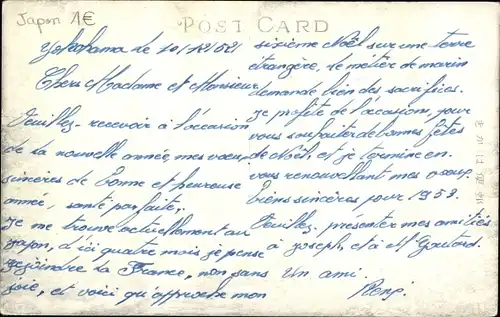 Japon 1€
POST CARD
Yokohama le 10/12/52
Chers Madame et Monsieur
Veuillez recevoir à l'occasion
de la nouvelle année, mes vœux
sincères de bonne et heureuse
année, santé parfaite,
Je me trouve actuellement au
Japon, d'ici quatre mois je pense
rejoindre la France, non sans
joie, et voici qu'approche mon
sixième Noël sur une terre
étrangère, le métier de marin
demande bien des sacrifices.
Je profite de l'occasion, pour
vous souhaiter de bonnes fêtes
de Noël, et je termine en
vous renouvellant mes vœux
biens sincères pour 1953.
Veuillez, présenter mes amitiés
à Joseph, et à Mr
Un ami.